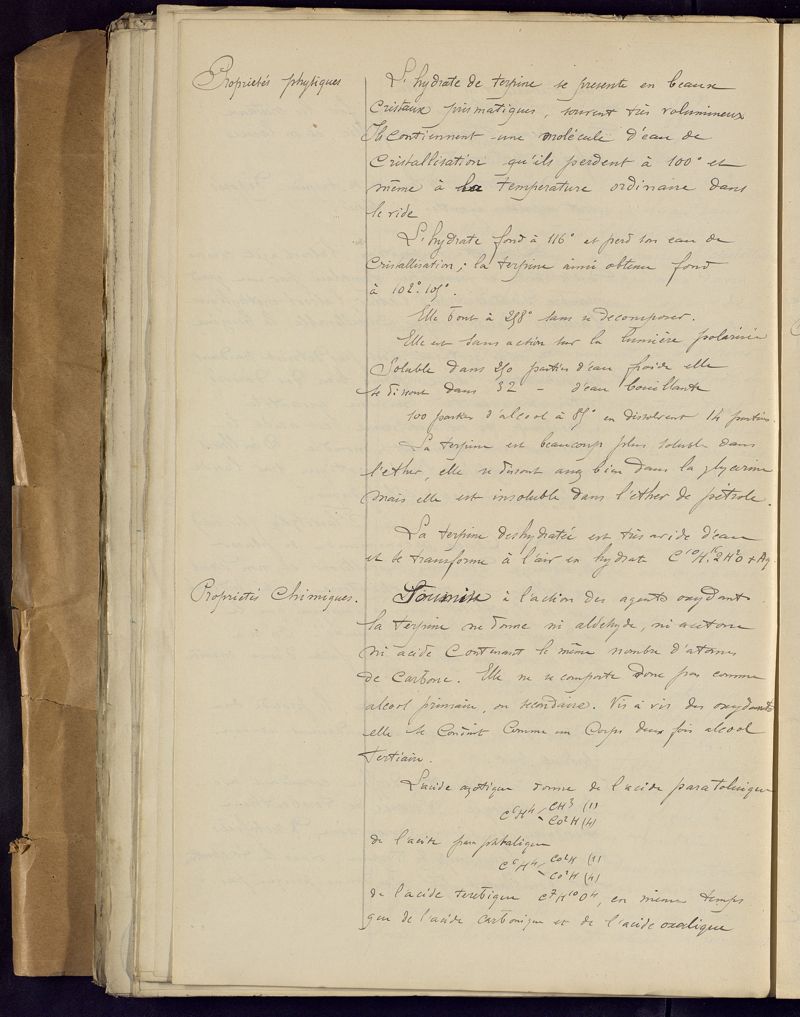 Propriétés physiques
L'hydrate de terpine se presente en beaux
cristaux prismatiques, souvent très volumineux
Ils contiennent une molécule d'eau de
cristallisation qu'ils perdent à 100° et
même à la température ordinaire dans
le vide
L'hydrate fond à 116° et perd son eau de
cristallisation; la terpine ainsi obtenue fond
à 102°.105°.
Elle bout à 258° sans se decomposer.
Elle est sans action sur la lumière polarisée
Soluble dans 250 parties d'eau froide elle
se dissout dans 32 – d'eau bouillante
100 parties d'alcool à 85° en dissolvent 14 parties.
La terpine est beaucoup plus soluble dans
l'ether, elle se dissout assez bien dans la glycerine
mais elle est insoluble dans l'ether de pétrole.
La terpine deshydratée est très avide d'eau
et se transforme à l'air en hydrate C¹⁰H¹⁶.2H²O + Aq.
Propriétés Chimiques.
Soumise à l'action des agents oxydants
la terpine ne donne ni aldéhyde, ni acétone
ni acide contenant le même nombre d'atomes
de carbone. Elle ne se comporte donc pas comme
alcool primaire, ou secondaire. Vis à vis des oxydants
elle se conduit comme un corps deux fois alcool
tertiaire.
L'acide azotique donne de l'acide paratoluique
C⁶H⁴ / CH³ (1)
- CO²H (4)
de l'acide paraphtalique
C⁶H⁴ / CO²H (1)
- CO²H (4)
de l'acide terebique C⁷H¹⁰O⁴, en même temps
que de l'acide carbonique et de l'acide oxalique